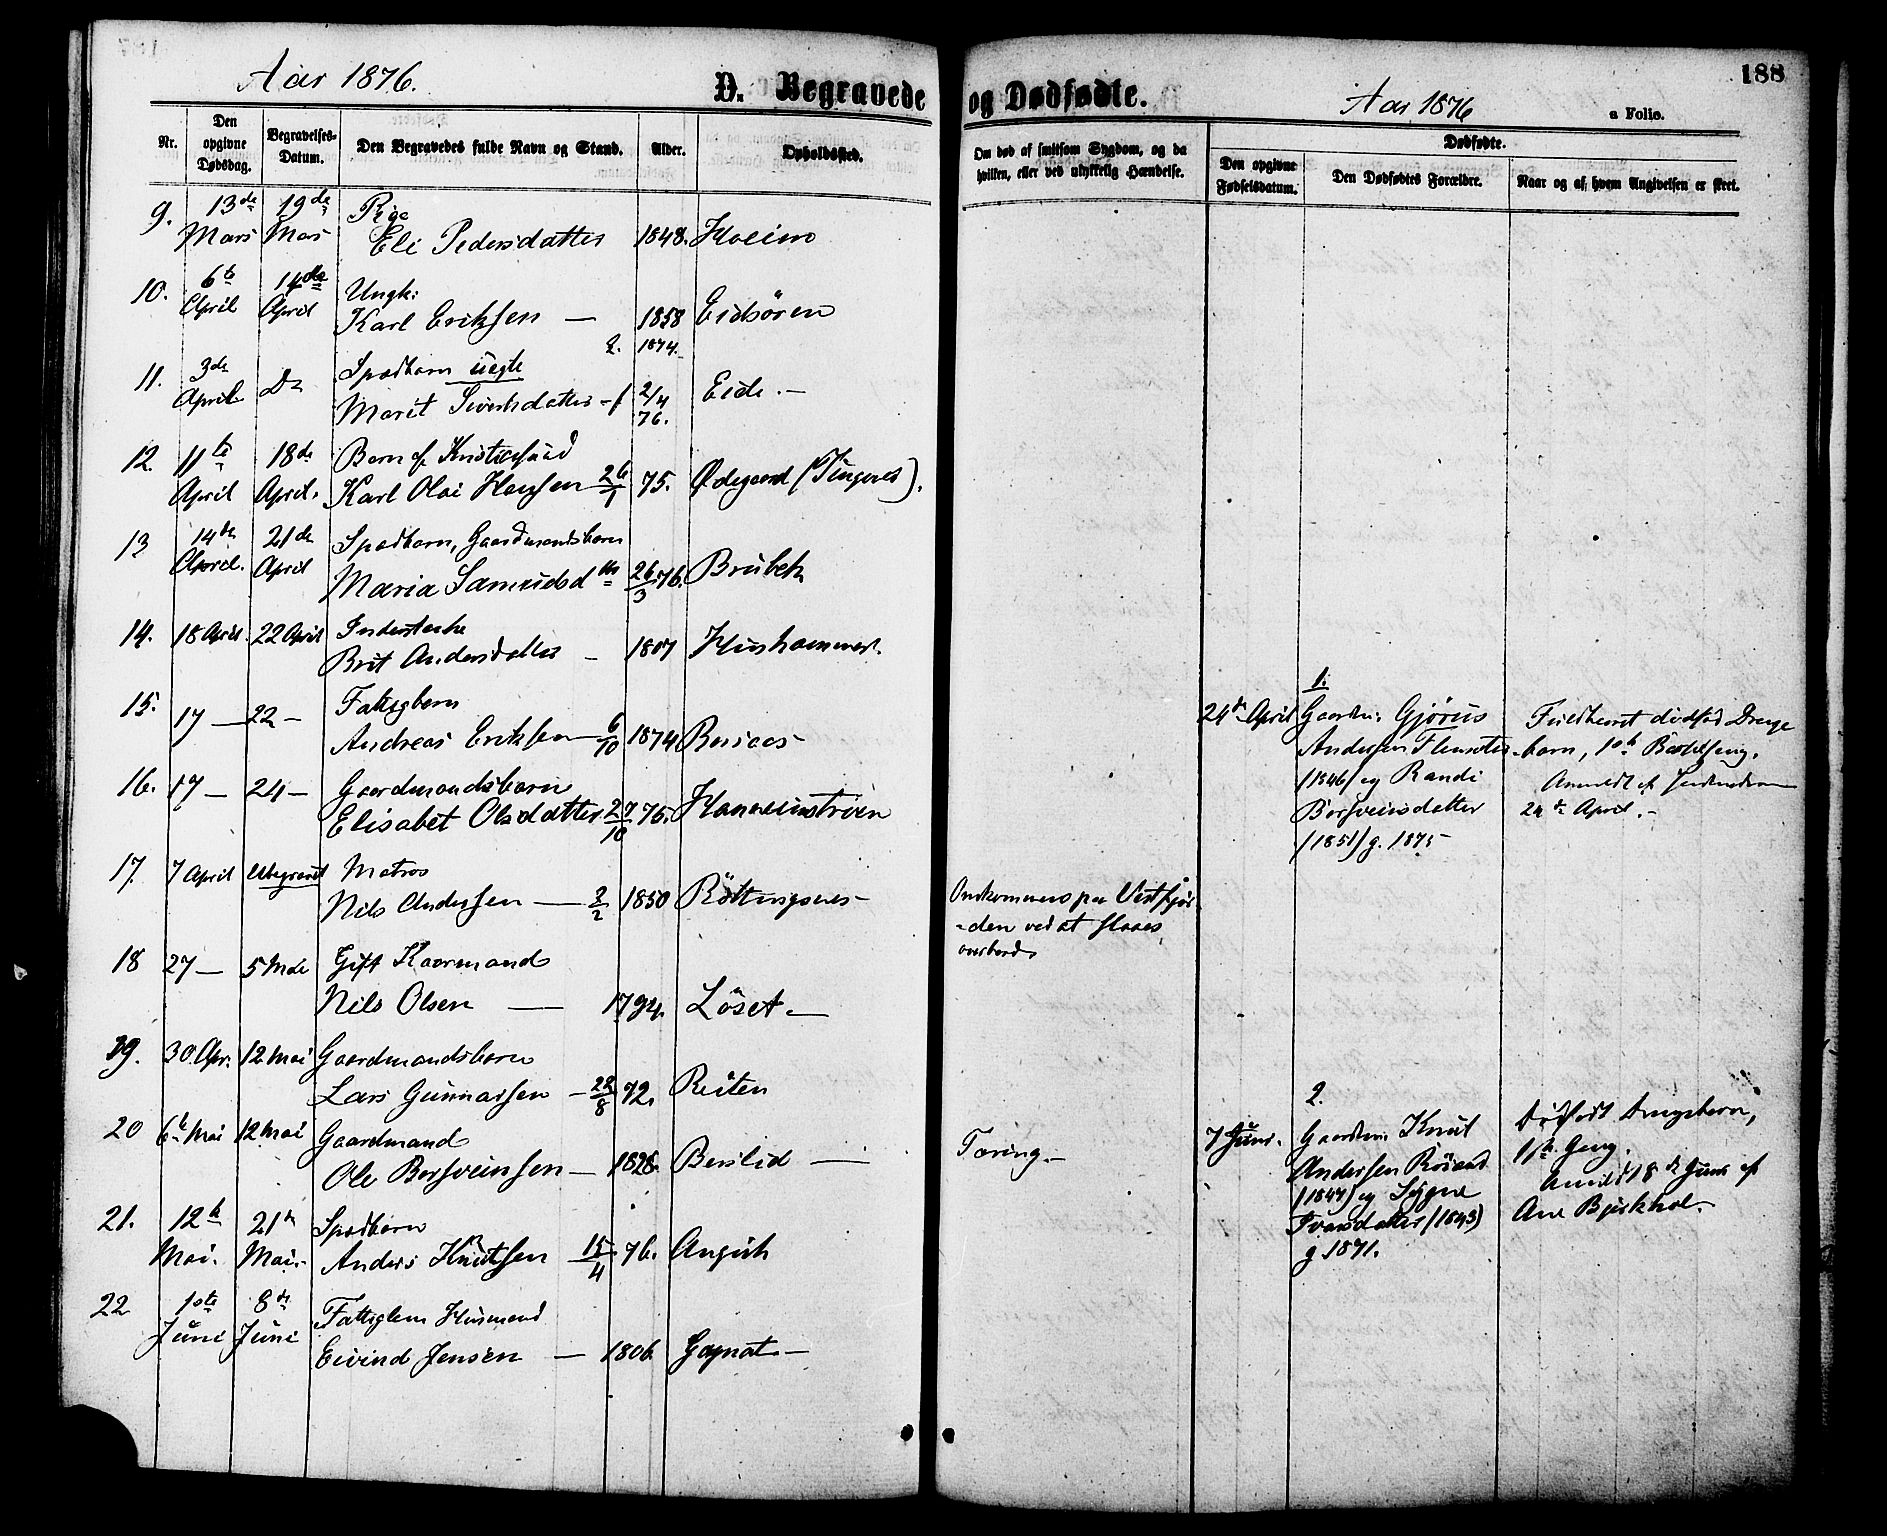 Aar 1876.
D. Begravede
og Dødfødte.
Aar 1876
188
a Folio.
Nr.
Den opgivne Dødsdag.
Begravelses-Datum.
Den Begravedes fulde Navn og Stand.
Alder.
Opholdssted.
Om død af smitsom Sygdom, og da hvilken, eller ved ulykkelig Hændelse.
Dødfødte.
Den opgivne Fødselsdatum.
Den Dødfødtes Forældre.
Naar og af hvem Angivelsen er skeet.
9. 13de Mars 19de Mars Pige
Eli Pedersdatter 1848. Hoeim
10. 6te April 14de April Ungk:
Karl Eriksen — 1858 Eidsören
11. 3de April Do Spædbarn uegte 1874.
Marit Sivertsdatter 2/4 76. Eide. —
12. 11te April 18de April. Barn af
Karl Olai Hansen 26/1 75. Ødegaard (Tingvold).
13 14de April. 21de April Spædbarn, Gaardmandsbarn
Maria Samuelsd 26/3 76. Brubek
14. 18 April. 22 April Inderste
Brit Andersdatter — 1807 Hushammer.
15. 17 — 22 — Fattigbarn
Andreas Eriksen 6/10 1874
16. 17 — 24 — Gaardmandsbarn
Elisabet Olsdatter 27/10 75.
17. 7 April Ubegravet Matros
Nils Andersen — 2/2 1850 Röttingsnes —
Omkommen paa Vestfjor-
-den ved at slaaes
overbord
18 27 — 5 Mai Gift Kaarmand
Nils Olsen — 1794. Löset —
19. 30 Apr. 12 Mai Gaardmandsbarn
Lars Gunnarsen — 22/8 72. Reiten
20 6te Mai 12 Mai Gaardmand
Ole Bersveinsen — 1826. Berslid —
Tæring. —
21. 12te Mai. 21de Mai. Spædbarn
Anders Knutsen 15/4 76. Angvik
22 1ste Juni 8de Juni Fattiglem Husmand
Eivind Jensen — 1806. Gagnat. —
1.
24de April Gaardm: Gjörus
Andersen
(1846) og Randi
Bersveinsdatter
(1851) g. 1875
Fuldbaaret dødfød Drenge
barn, 1ste Barselseng.
Anmeldt af
24de April. —
2.
7 Juni. Gaardm: Knut
Andersen Rösand
(1847) og Sygne
Ivarsdatter (1843)
g 1871.
Dødfødt Drengebarn,
1ste Seng.
Anmeldt 18de Juni af
Ane Bjerkhol. —